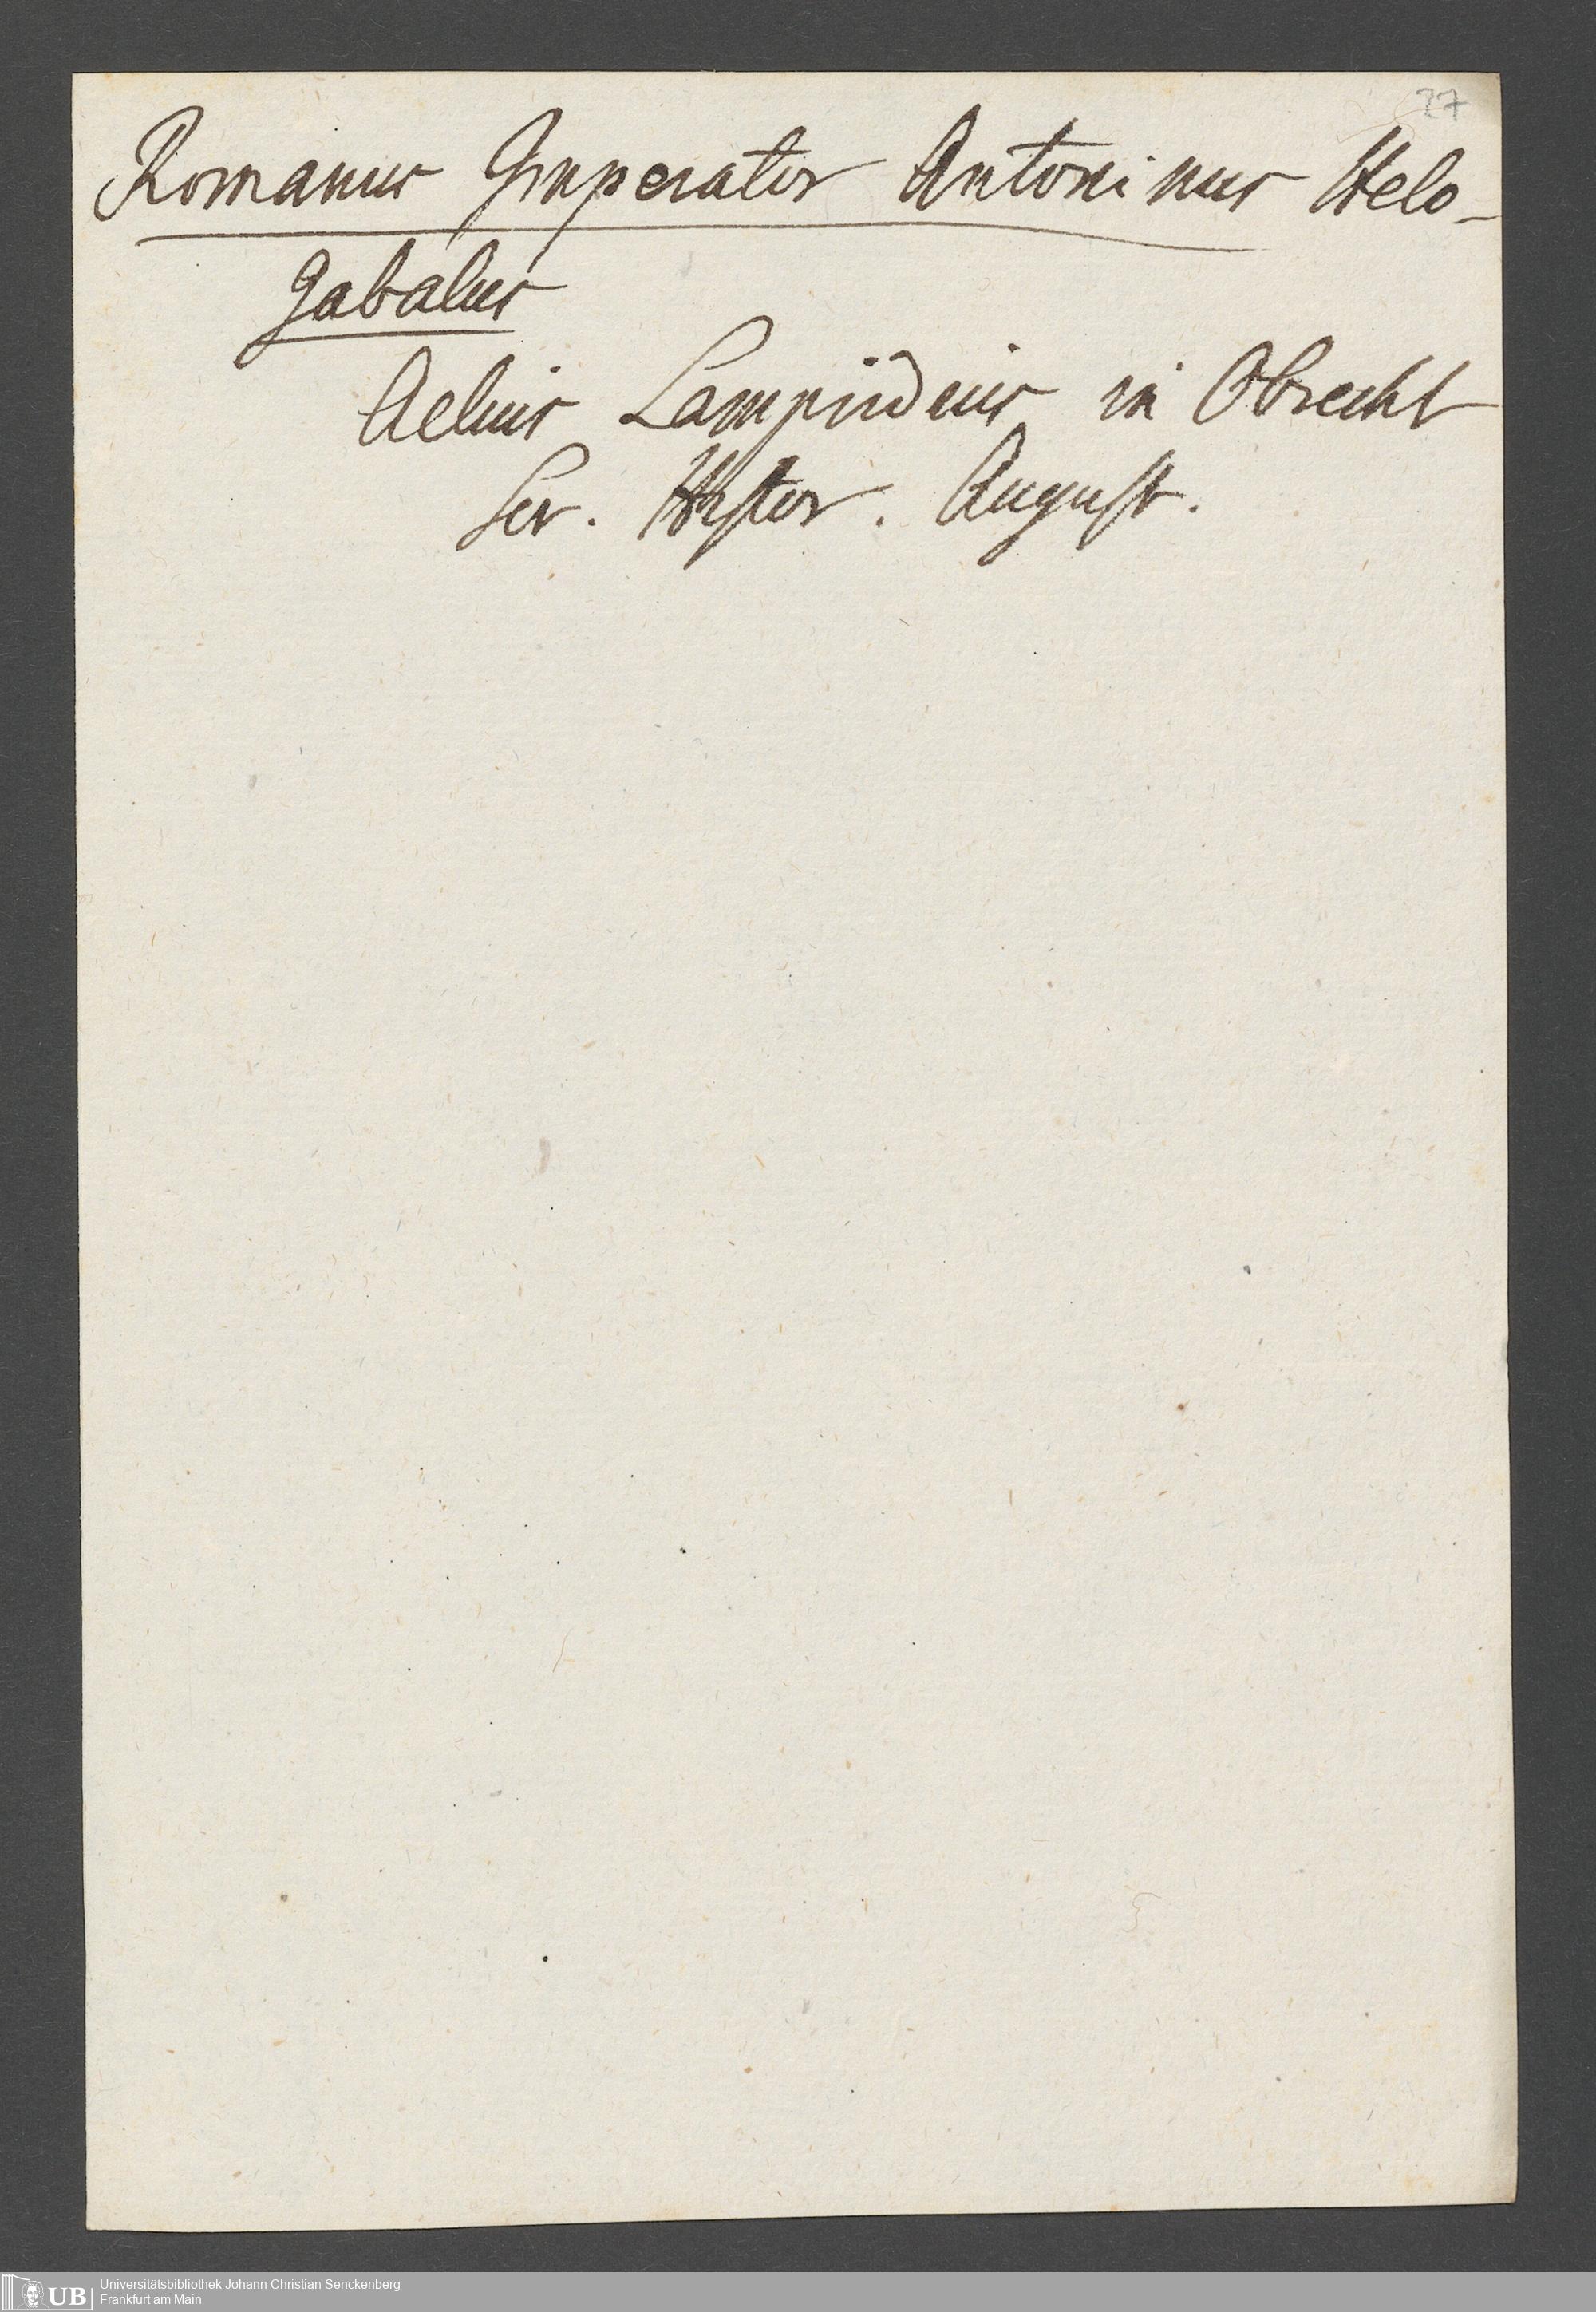 27
Romanus Imperator Antoninus Helo-
gabalus
Aelius Lampridius in Obrecht
Scr. Histor. August.
UB
Universitätsbibliothek Johann Christian Senckenberg
Frankfurt am Main